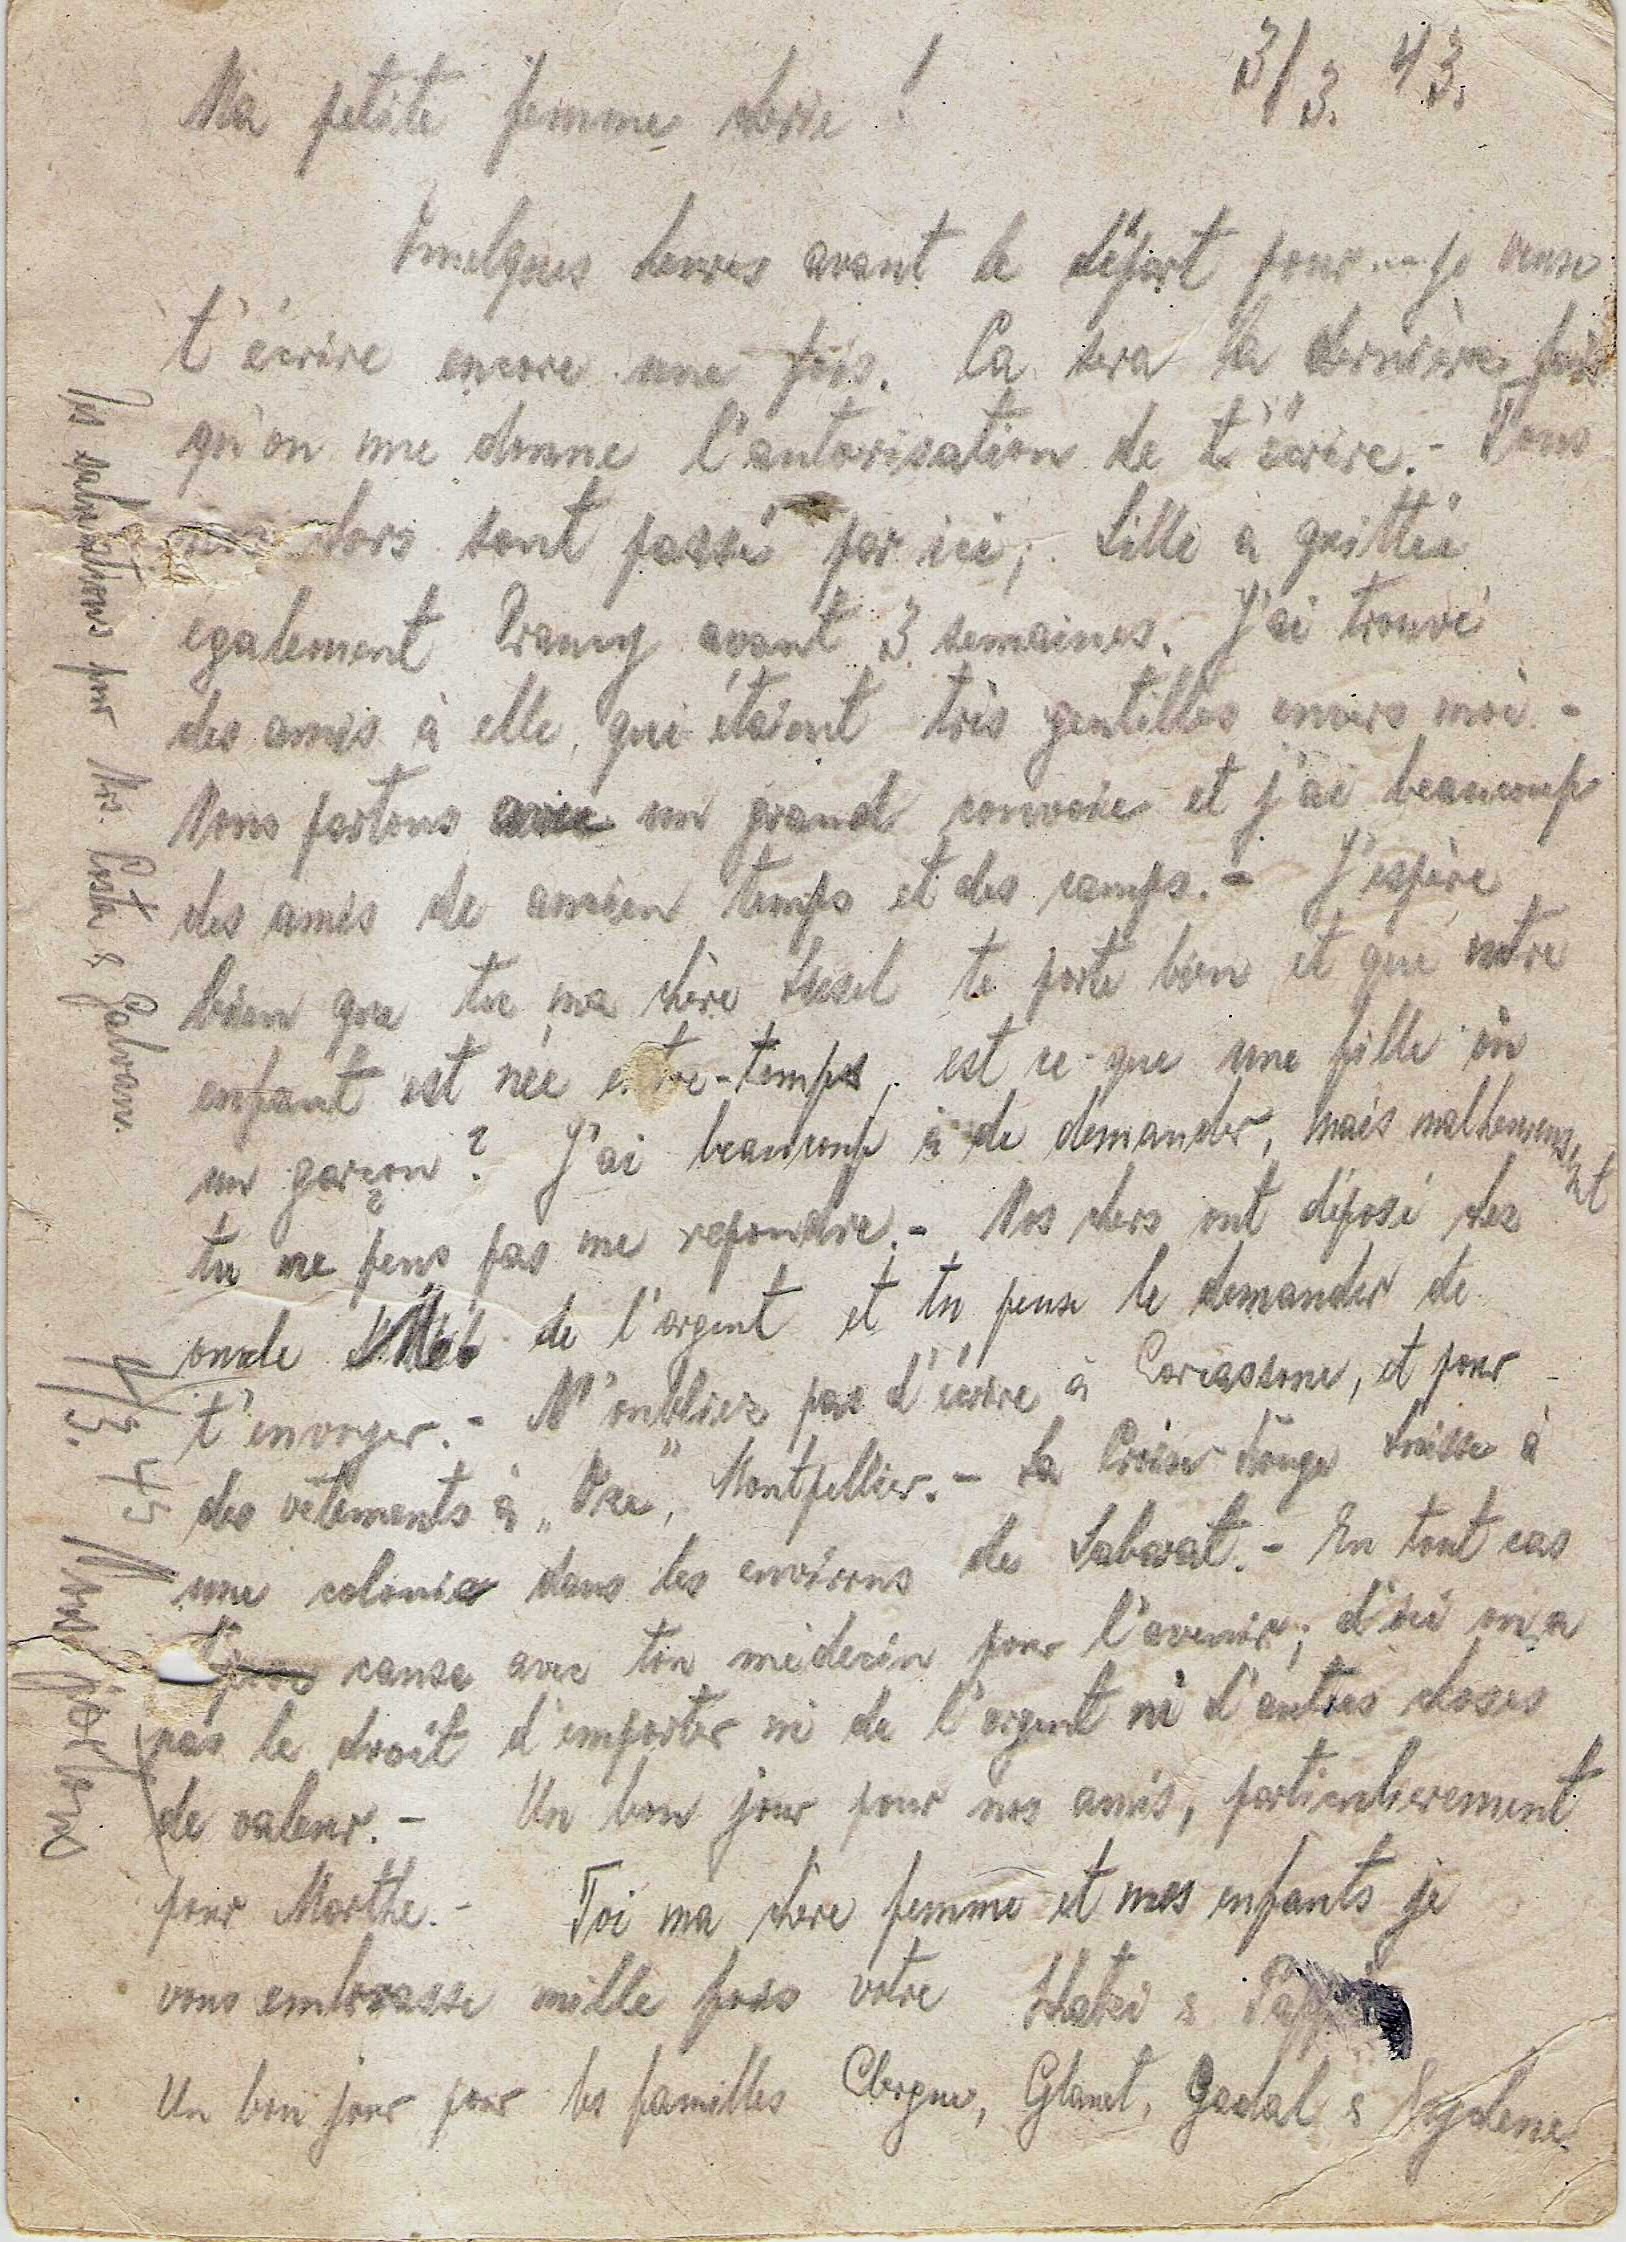 3/3. 43.
Ma petite femme cherie!
Quelques heures avant le départ pour .... je veux
t'écrire encore une fois. Ca sera la dernière fois
qu'on me donne l'autorisation de t'écrire.- Tous
chers sont passé par ici, Lilli a quittée
egalement Drancy avant 3 semaines. J'ai trouvé
des amis à elle, qui étaient très gentilles envers moi.-
Nous partons avec un grand convoie et j'ai beaucoup
des amis de ancien temps et des camps.- J'espère
bien que tu ma chère Susel te porte bien et que notre
enfant est née entre-temps, est ce-que une fille où
un garçon? J'ai beaucoup à de demander, mais malheureus.ent
tu ne peus pas me repondre.- Nos chers ont déposé chez
oncle de l'argent et tu peux le demander de
t'envoyer.- N'oubliez pas d'écrire à Carcassone, et pour
des vêtements à „Ose", Montpellier.- La Croix Rouge Suisse à
une colonie dans les environs de Sabarat.- En tout cas
cause avec ton médecin pour l'avenir; d'ici on a
pas le droit d'emporter ni de l'argent ni d'autres choses
de valeur.- Un bon jour pour nos amis, particulierement
pour Marthe.- Toi ma chère femme et mes enfants je
vous embrasse mille fois votre Schatzi & Pappi
Un bon jour pour les familles Clergue, Glanet, Gadal &
Mes salutations pour Mrs. Costa & Galvan.
4/3. 43 Nous partons